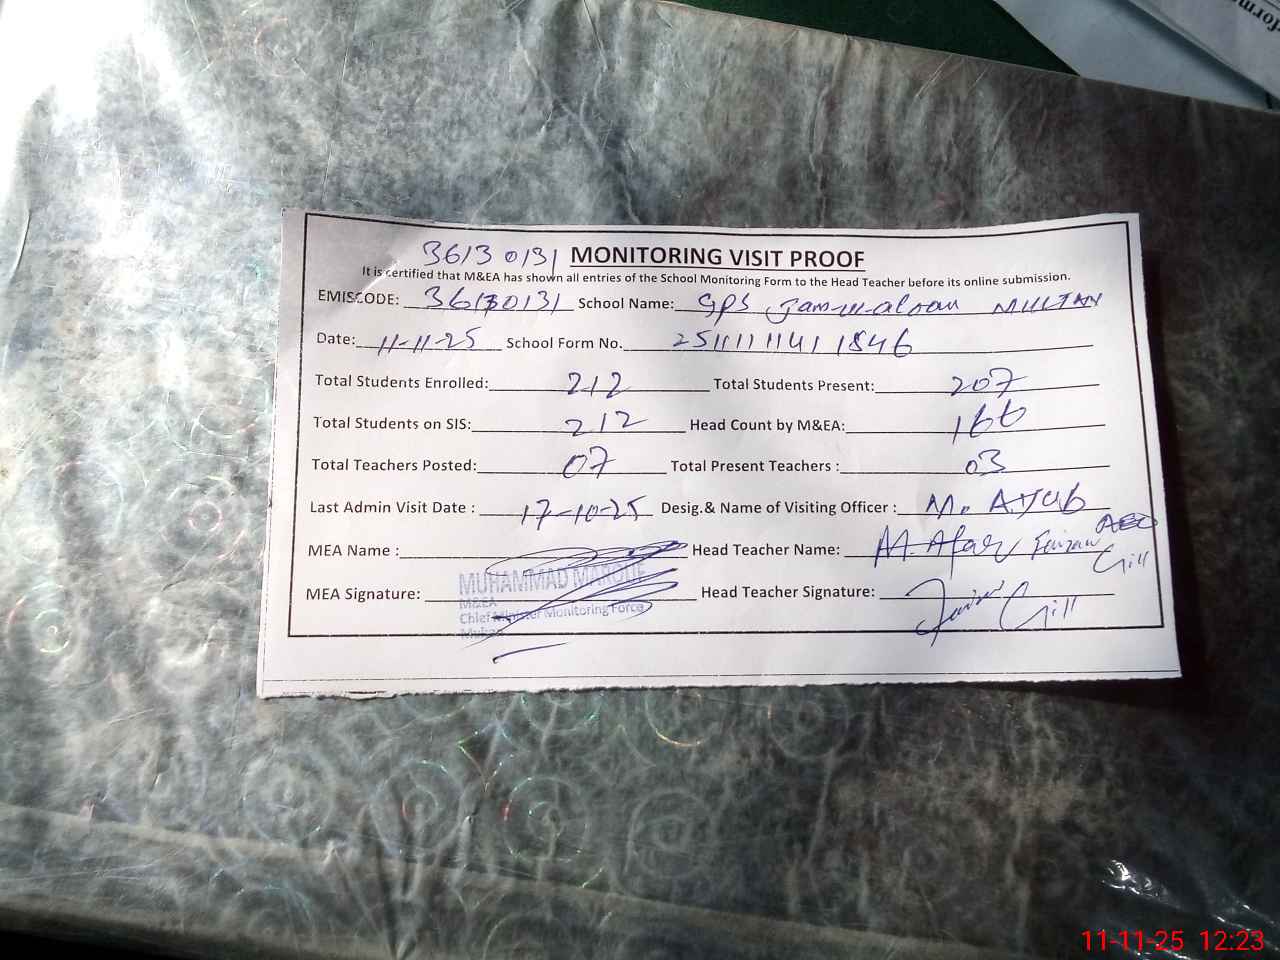 36130131 MONITORING VISIT PROOF
It is certified that M&EA has shown all entries of the School Monitoring Form to the Head Teacher before its online submission.
EMISCODE: 36130131 School Name: GPS MULTAN
Date: 11-11-25 School Form No. 25111111411846
Total Students Enrolled: 212 Total Students Present: 207
Total Students on SIS: 212 Head Count by M&EA: 166
Total Teachers Posted: 07 Total Present Teachers : 03
Last Admin Visit Date : 17-10-25 Desig.& Name of Visiting Officer : M. AYUB
AEO
MEA Name : Head Teacher Name: Faizan Gill
MUHAMMAD
MEA Signature: Head Teacher Signature: Gill
M&EA
Chief Minister Monitoring Force
Multan
11-11-25 12:23